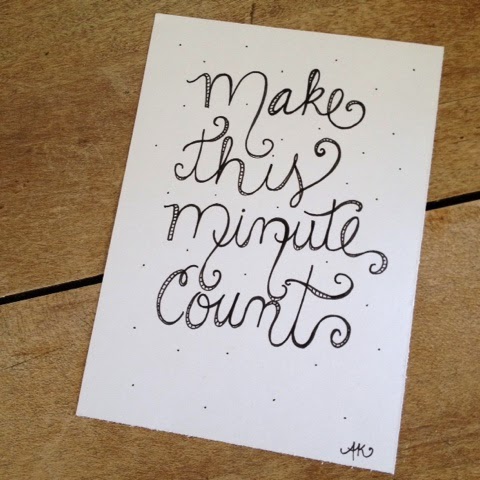 Make
this
minute
Count
AK